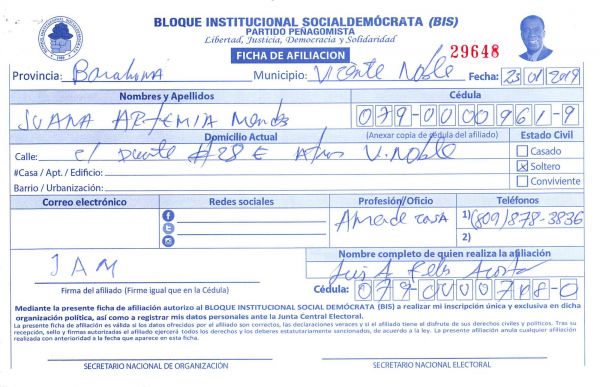 BLOQUE INSTITUCIONAL SOCIALDEMÓCRATA (BIS)
PARTIDO PEÑAGOMISTA
Libertad, Justicia, Democracia y Solidaridad
FICHA DE AFILIACION
29648
Provincia: Barahona Municipio: Vicente Noble Fecha: 23/01/2019
Nombres y Apellidos Cédula
JUANA ARTEMIA Mendez 079-0000961-9
Domicilio Actual (Anexar copia de cédula del afiliado) Estado Civil
Calle: c/ Duarte #28 V. Noble Casado
#Casa / Apt. / Edificio: X Soltero
Barrio / Urbanización: Conviviente
Correo electrónico Redes sociales Profesión/Oficio Teléfonos
Ama de casa 1) (809) 878-3836
2)
Nombre completo de quien realiza la afiliación
JAM Luis A Feliz Acosta
Firma del afiliado (Firme igual que en la Cédula) Cédula: 079-0000748-0
Mediante la presente ficha de afiliación autorizo al BLOQUE INSTITUCIONAL SOCIAL DEMÓCRATA (BIS) a realizar mi inscripción única y exclusiva en dicha
organización política, así como a registrar mis datos personales ante la Junta Central Electoral.
La presente ficha de afiliación es válida si los datos ofrecidos por el afiliado son correctos, las declaraciones veraces y si el afiliado tiene el disfrute de sus derechos civiles y políticos. Tras su
recepción, sello y firmas autorizadas el afiliado ejercerá todos los derechos y los deberes estatutariamente sancionados, de acuerdo a la ley. La presente afiliación anula cualquier afiliación
realizada con anterioridad a la fecha que aparece en esta ficha.
SECRETARIO NACIONAL DE ORGANIZACIÓN SECRETARIO NACIONAL ELECTORAL